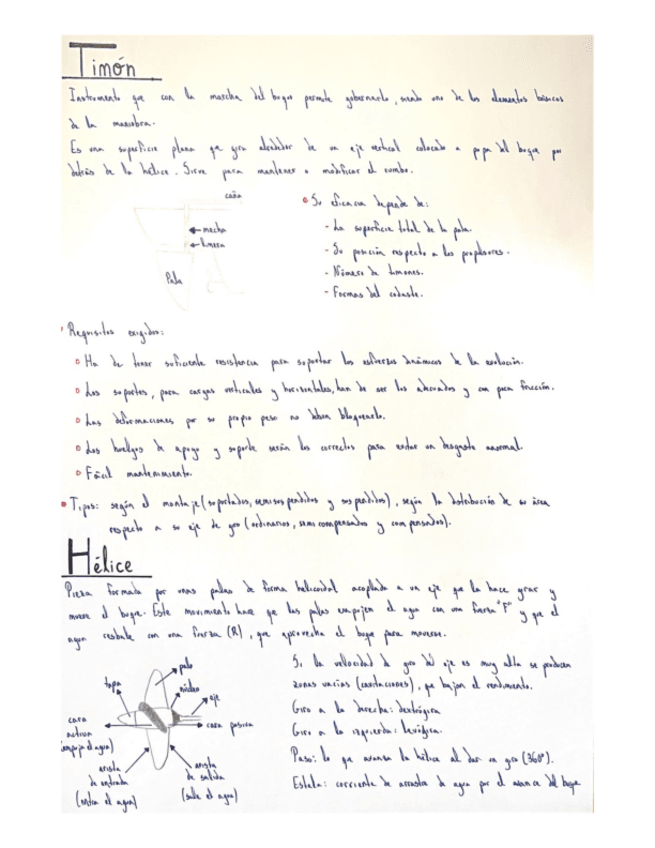 Timón
Instrumento que con la marcha del buque permite gobernarlo, siendo uno de los elementos básicos
de la maniobra.
Es una superficie plana que gira alrededor de un eje vertical colocado a popa del buque por
detrás de la hélice. Sirve para mantener o modificar el rumbo.
caña
mecha
limera
Pala
Su eficacia depende de:
- La superficie total de la pala.
- Su posición respecto a los propulsores.
- Número de timones.
- Formas del codaste.
Requisitos exigidos:
Ha de tener suficiente resistencia para soportar los esfuerzos dinámicos de la evolución.
Los soportes, para cargas verticales y horizontales, han de ser los adecuados y con poca fricción.
Las deformaciones por su propio peso no deben bloquearlo.
Los huelgos de apoyo y soporte serán los correctos para evitar un desgaste anormal.
Fácil mantenimiento.
Tipos: según el montaje (soportados, semisuspendidos y suspendidos), según la distribución de su área
respecto a su eje de giro (ordinarios, semicompensados y compensados).
Hélice
Pieza formada por unas palas de forma helicoidal acoplada a un eje que la hace girar y
mueve el buque. Este movimiento hace que las palas empujen el agua con una fuerza "F" y que el
agua resbale con una fuerza (R), que aprovecha el buque para moverse.
pala
tapa
núcleo
eje
cara
activa
(empuja el agua)
cara pasiva
arista
de entrada
(entra el agua)
arista
de salida
(sale el agua)
Si la velocidad de giro del eje es muy alta se producen
zonas vacías (cavitaciones), que bajan el rendimiento.
Giro a la derecha: dextrógira
Giro a la izquierda: levógira.
Paso: lo que avanza la hélice al dar un giro (360°).
Estela: corriente de arrastre de agua por el avance del buque